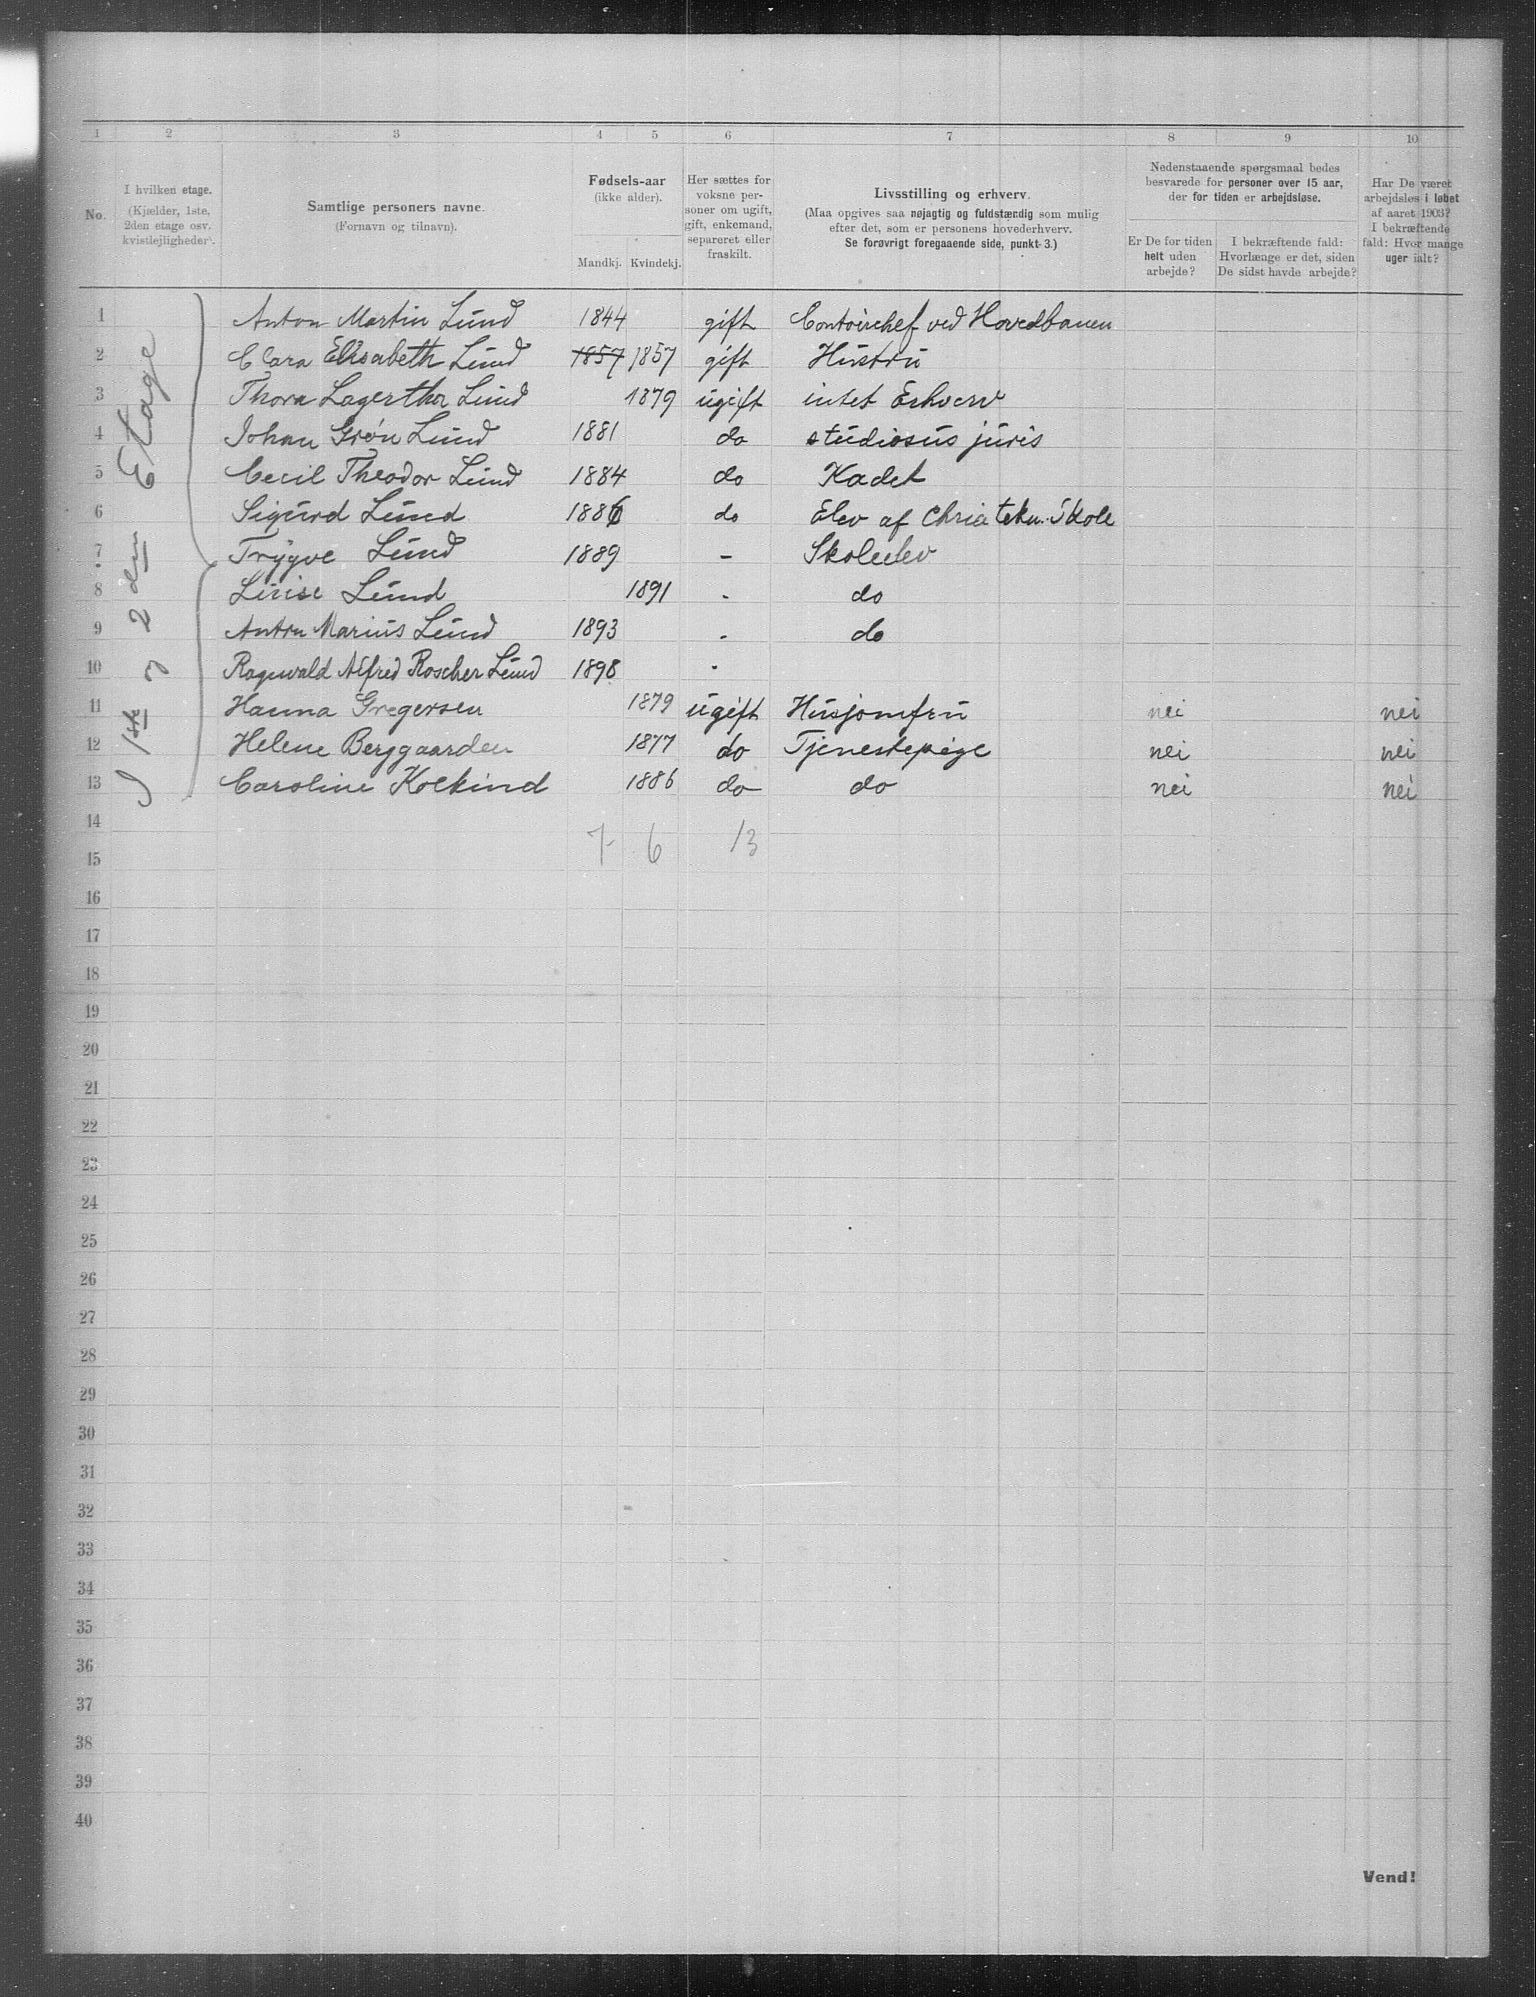 1 2 3 4 5 6 7 8 9 10
No.
I hvilken etage.
(Kjælder, 1ste,
2den etage osv.
kvistlejligheder).
Samtlige personers navne.
(Fornavn og tilnavn).
Fødsels-aar
(ikke alder).
Mandkj. Kvindekj.
Her sættes for
voksne per-
soner om ugift,
gift, enkemand,
separeret eller
fraskilt.
Livsstilling og erhverv.
(Maa opgives saa nøjagtig og fuldstændig som mulig
efter det, som er personens hovederhverv.
Se forøvrigt foregaaende side, punkt 3.)
Nedenstaaende spørgsmaal bedes
besvarede for personer over 15 aar,
der for tiden er arbejdsløse.
Er De for tiden
helt uden
arbejde?
I bekræftende fald:
Hvorlænge er det, siden
De sidst havde arbejde?
Har De været
arbejdsløs i løbet
af aaret 1903?
I bekræftende
fald: Hvor mange
uger ialt?
I 1ste og 2den Etage
1 Anton Martin Lund 1844 gift Contoirchef ved Hovedbanen
2 Clara Elisabeth Lund 1857 1857 gift Hustru
3 Thora Lagertha Lund 1879 ugift intet Erhverv
4 Johan Grøn Lund 1881 do studiosus juris
5 Cecil Theodor Lund 1884 do Kadet
6 Sigurd Lund 1886 do Elev af Chria tekn. Skole
7 Trygve Lund 1889 - Skoleelev
8 Lurise Lund 1891 - do
9 Anton Marius Lund 1893 - do
10 Ragnvald Alfred Roscher Lund 1898 -
11 Hanna Gregersen 1879 ugift Husjomfru nei nei
12 Helene Berggaarden 1877 do Tjenestepige nei nei
13 Caroline Kolkind 1886 do do nei nei
14
7 6 13
15
16
17
18
19
20
21
22
23
24
25
26
27
28
29
30
31
32
33
34
35
36
37
38
39
40
Vend!